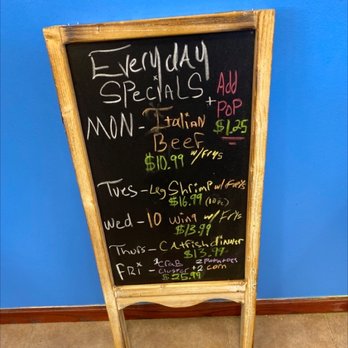 EVERYDAY
SPECIALS
+ Add
POP
$1.25
MON - Italian
Beef
$10.99 w/Frys
Tues - Leg Shrimp w/Frys
$16.99 (10pc)
Wed - 10 wing w/Frys
$13.99
Thurs - Catfish dinner
$13.99
FRI - 1 CRAB 2 Potatoes
Cluster + 2 corn
$25.99